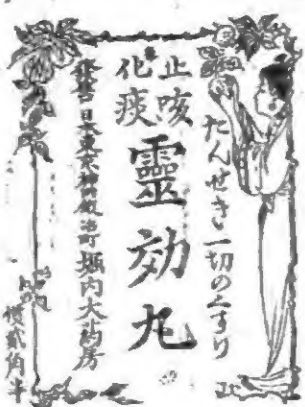 たんせき一切のくすり
止咳
化痰
靈効丸
日本東京 鍛冶町 堀内 药房
價貳角半